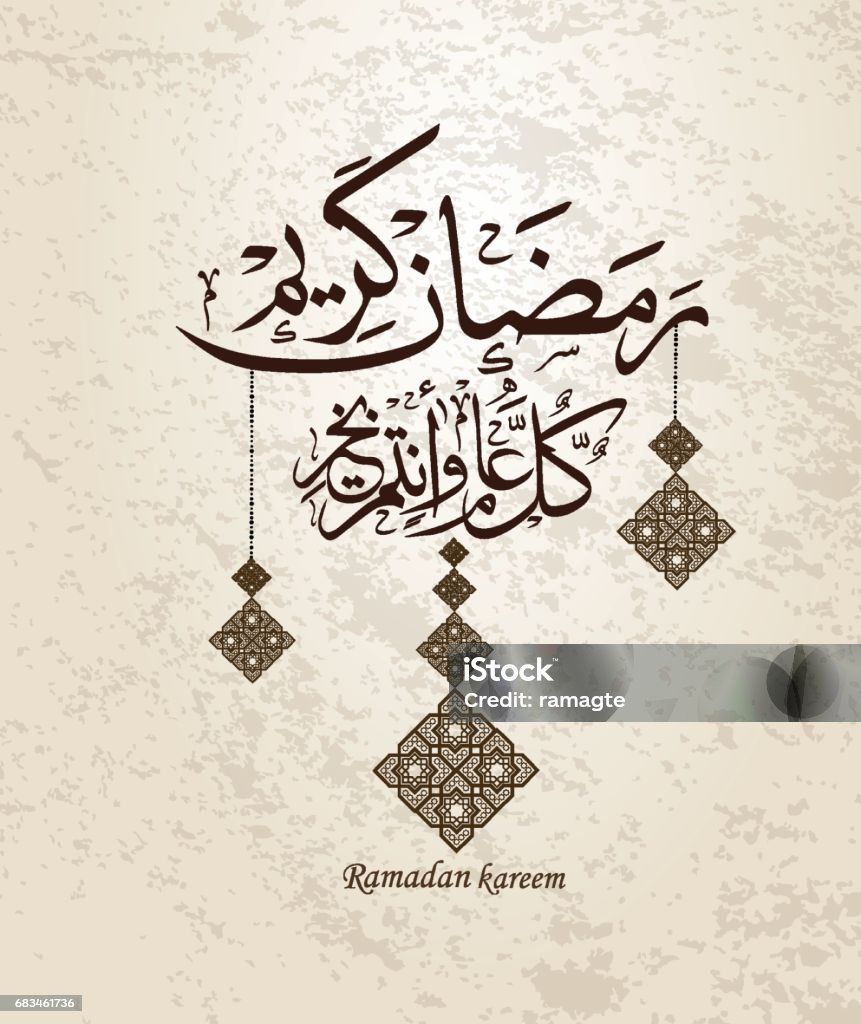 رمضان كريم
كل عام وأنتم بخير
iStock
Credit: ramagte
Ramadan kareem
683461736